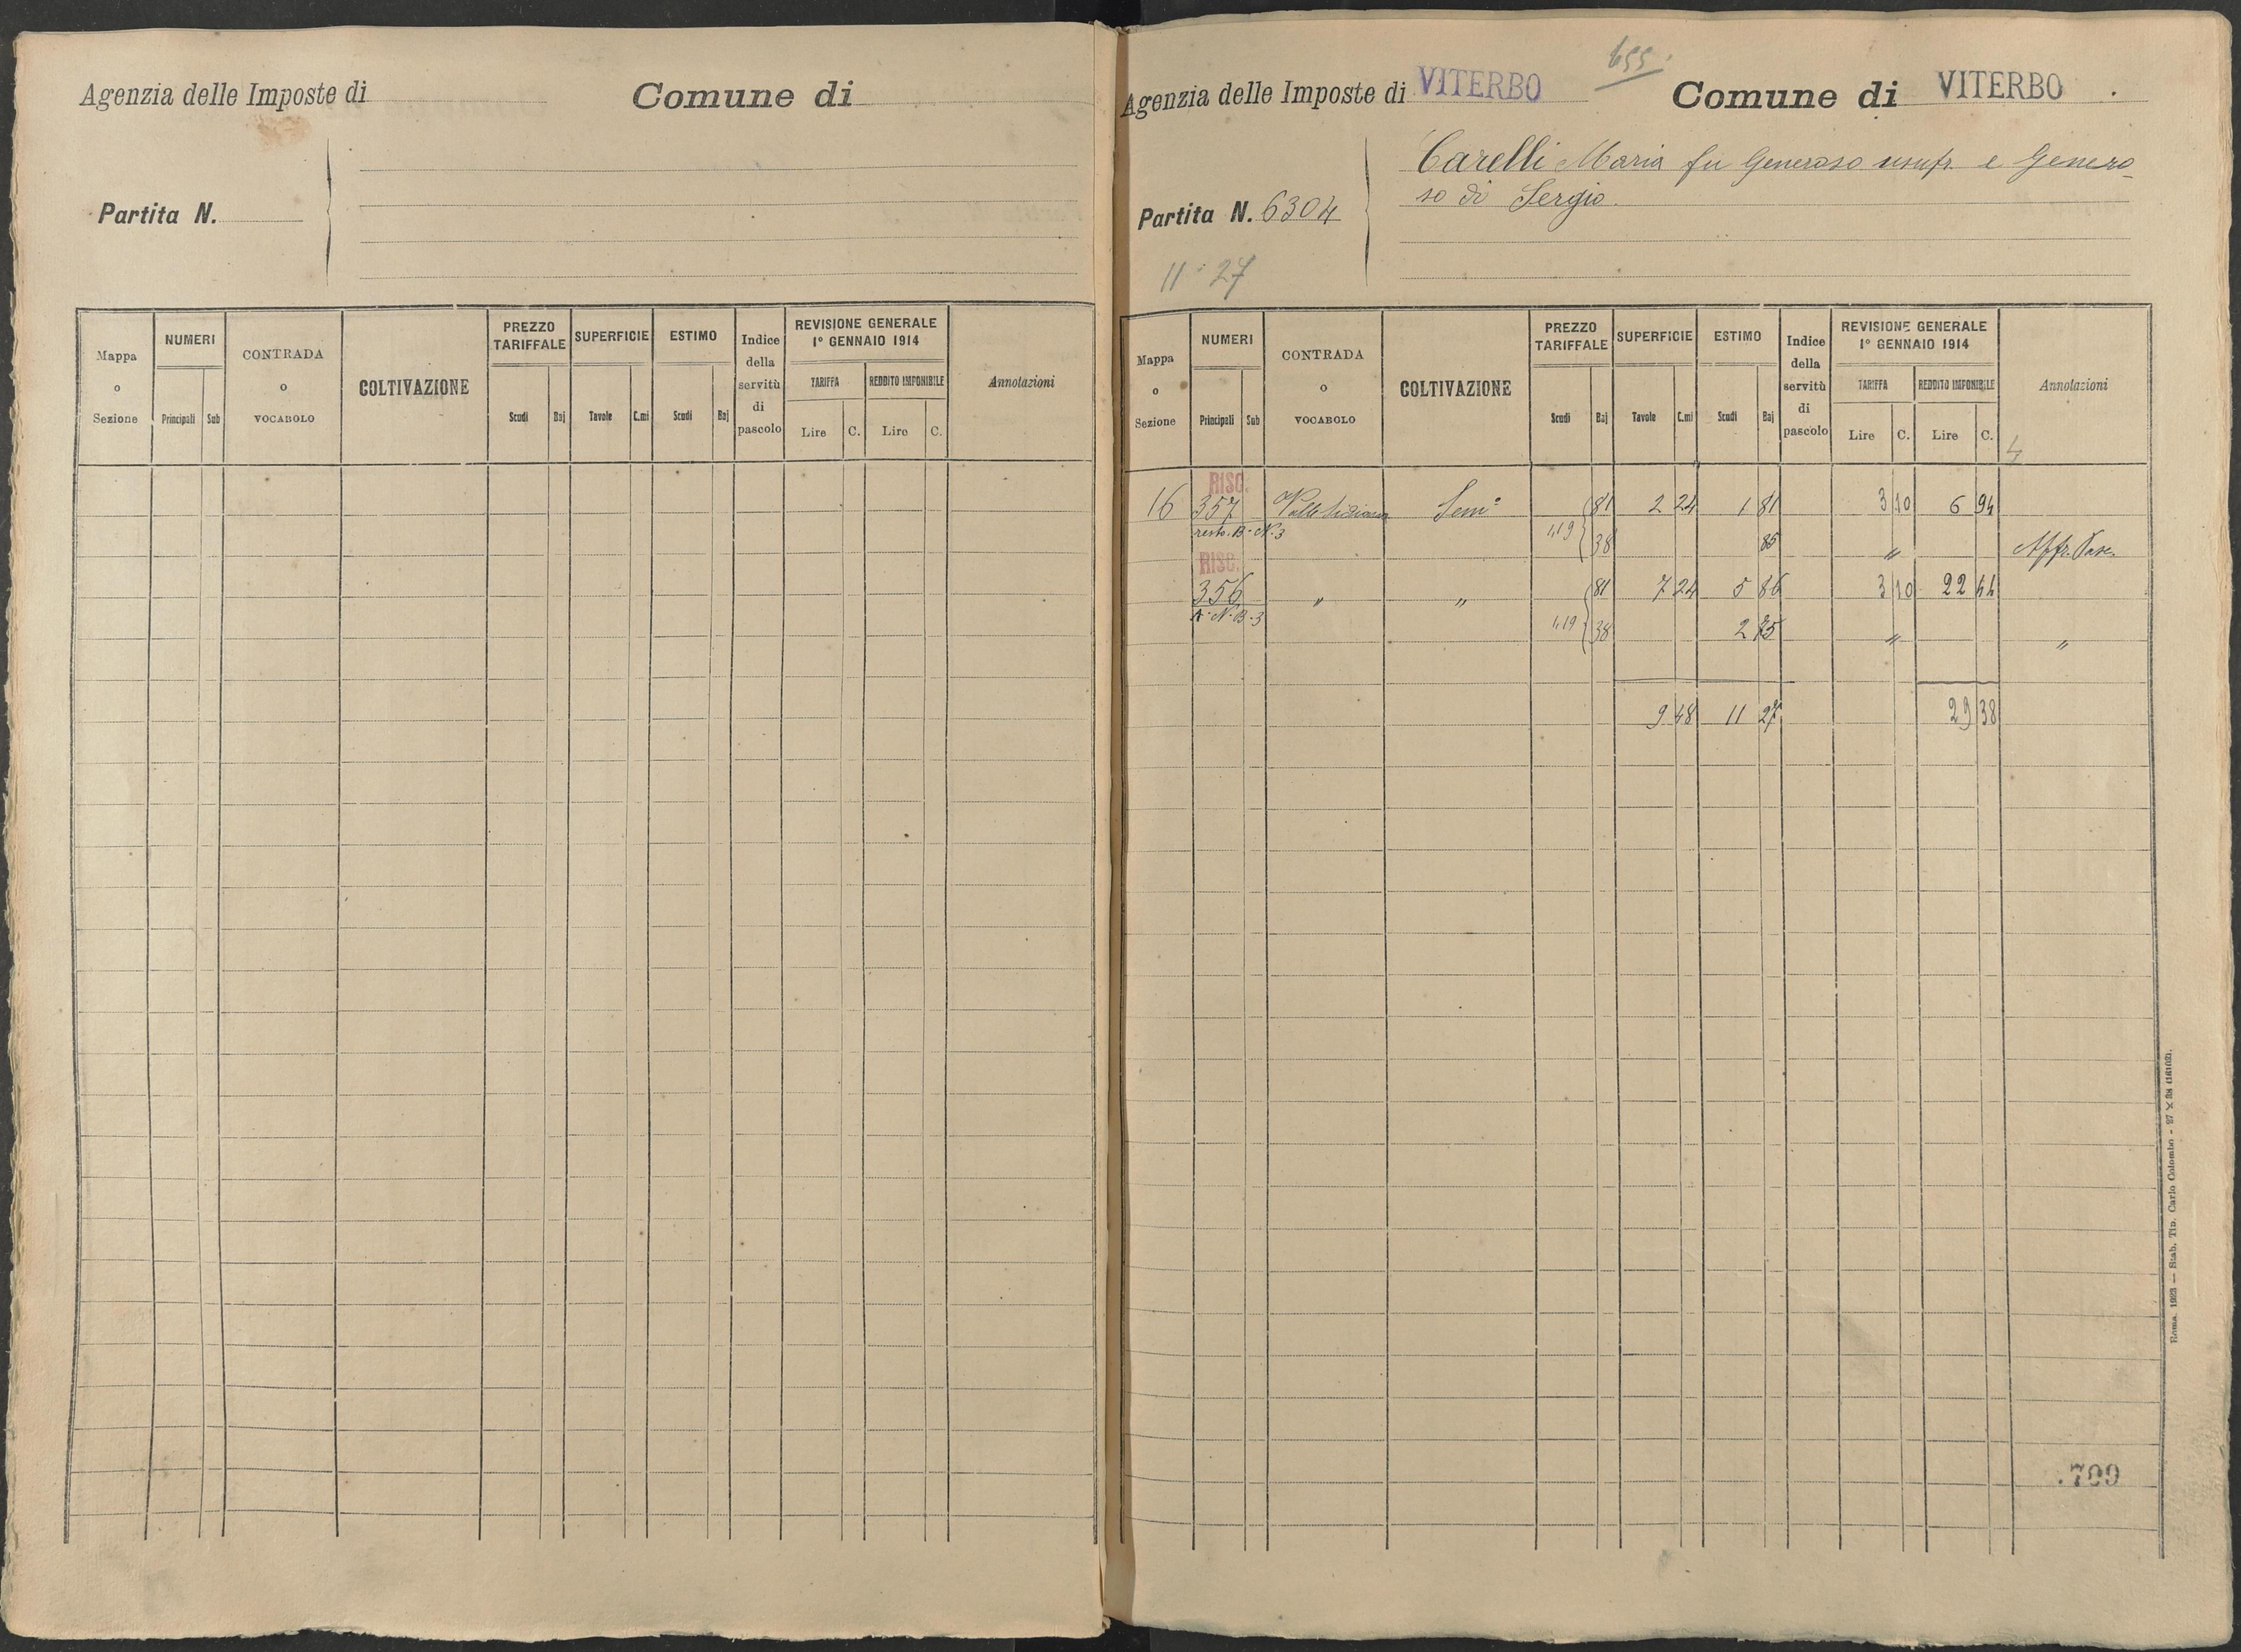 Agenzia delle Imposte di
Comune di
Partita N.
Mappa o Sezione
NUMERI
Principali
Sub
CONTRADA o VOCABOLO
COLTIVAZIONE
PREZZO TARIFFALE
Scudi
Baj
SUPERFICIE
Tavole
C.mi
ESTIMO
Scudi
Baj
Indice della servitù di pascolo
REVISIONE GENERALE
1° GENNAIO 1914
TARIFFA
REDDITO IMPONIBILE
Lire
C.
Lire
C.
Annotazioni
Agenzia delle Imposte di VITERBO
655
Comune di VITERBO
Partita N. 6304
Carelli Maria fu Generoso usufr. e Genero-
so di Sergio
11 27
Mappa o Sezione
NUMERI
Principali
Sub
CONTRADA o VOCABOLO
COLTIVAZIONE
PREZZO TARIFFALE
Scudi
Baj
SUPERFICIE
Tavole
C.mi
ESTIMO
Scudi
Baj
Indice della servitù di pascolo
REVISIONE GENERALE
1° GENNAIO 1914
TARIFFA
REDDITO IMPONIBILE
Lire
C.
Lire
C.
Annotazioni
4
RISC.
16 357 Semo 81 2 24 1 81 3 10 6 94
resto. B. N. 3 1,19 38 85 " Affr. Pasc.
RISC.
356 " " 81 7 24 5 86 3 10 22 44
A. N. B. 3 1,19 38 2 75 " "
9 48 11 27 29 38
709
Roma, 1923 — Stab. Tip. Carlo Colombo - 27 X 38 (16162).